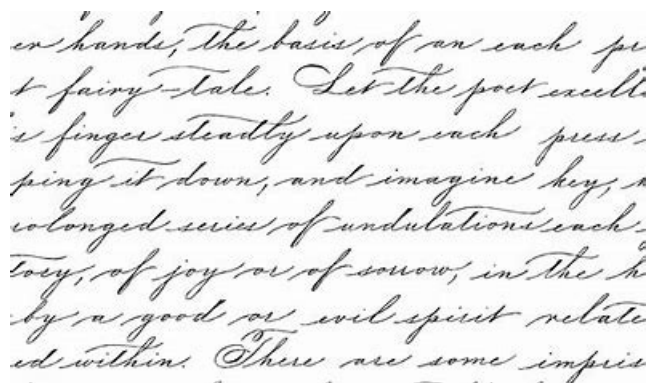 er hands, the basis of an each pr
t fairy-tale. Let the poet excell
s finger steadily upon each press
ping it down, and imagine key,
rolonged series of undulations each
tory, of joy or of sorrow, in the h
by a good or evil spirit relate
ed within. There are some impris